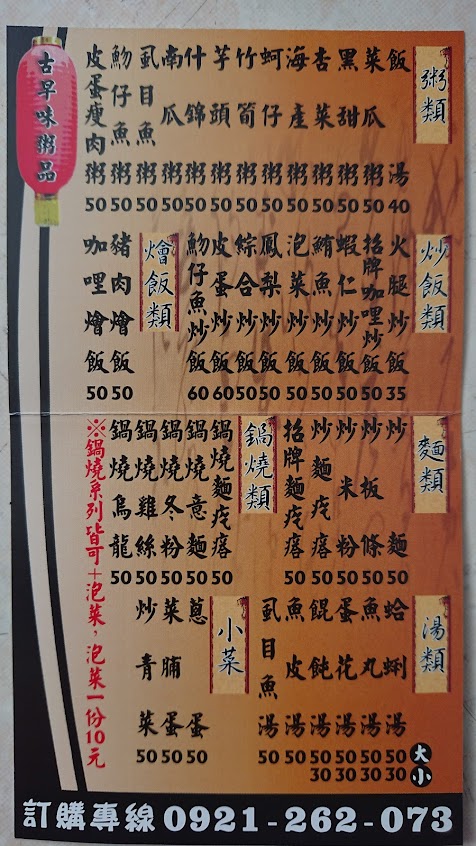 古早味粥品
粥類
飯湯 40
菜瓜粥 50
黑甜粥 50
杏菜粥 50
海產粥 50
蚵仔粥 50
竹筍粥 50
芋頭粥 50
什錦粥 50
南瓜粥 50
虱目魚粥 50
魩仔魚粥 50
皮蛋瘦肉粥 50
炒飯類
火腿炒飯 35
招牌咖哩炒飯 50
蝦仁炒飯 50
鮪魚炒飯 50
泡菜炒飯 50
鳳梨炒飯 50
綜合炒飯 50
皮蛋炒飯 60
魩仔魚炒飯 60
燴飯類
豬肉燴飯 50
咖哩燴飯 50
麵類
炒麵 50
炒板條 50
炒米粉 50
炒麵疙瘩 50
招牌麵疙瘩 50
鍋燒類
鍋燒麵疙瘩 50
鍋燒意麵 50
鍋燒冬粉 50
鍋燒雞絲 50
鍋燒烏龍 50
※鍋燒系列皆可+泡菜,泡菜一份10元
湯類
大 小
蛤蜊湯 50 30
魚丸湯 50 30
蛋花湯 50 30
餛飩湯 50 30
魚皮湯 50
虱目魚湯 50
小菜
蔥蛋 50
菜脯蛋 50
炒青菜 50
訂購專線 0921-262-073